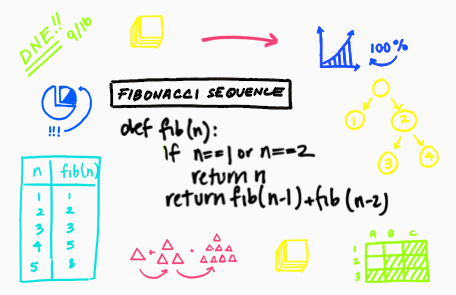 DNE!!
9/16
100%
FIBONACCI SEQUENCE
def fib(n):
if n==1 or n==2
return n
return fib(n-1)+fib(n-2)
!!!
1 2
3 4
n fib(n)
1 1
2 2
3 3
4 5
5 8
+ +
A B C
1
2
3